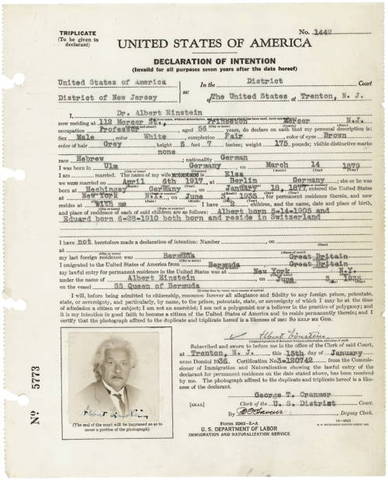 TRIPLICATE
(To be given to declarant)
No. 1442
UNITED STATES OF AMERICA
DECLARATION OF INTENTION
(Invalid for all purposes seven years after the date hereof)
United States of America In the District Court
District of New Jersey of The United States at Trenton, N. J.
I, Dr. Albert Einstein
now residing at 112 Mercer St., Princeton Mercer N.J.
occupation Professor, aged 56 years, do declare on oath that my personal description is:
Sex Male, color White, complexion Fair, color of eyes Brown
color of hair Grey, height 5 feet 7 inches; weight 175 pounds; visible distinctive marks
none
race Hebrew; nationality German
I was born in Ulm Germany, on March 14 1879
I am married. The name of my wife is Elsa
we were married on April 6th 1917, at Berlin Germany; she or he was
born at Hechingen Germany, on January 18, 1877, entered the United States
at New York N.Y., on June 3 1935, for permanent residence therein, and now
resides at with me. I have 2 children, and the name, date and place of birth,
and place of residence of each of said children are as follows: Albert born 5-14-1905 and
Eduard born 6-28-1910 both born and reside in Switzerland
I have not heretofore made a declaration of intention: Number, on
at
my last foreign residence was Bermuda Great Britain
I emigrated to the United States of America from Bermuda Great Britain
my lawful entry for permanent residence in the United States was at New York N.Y.
under the name of Albert Einstein, on June 3 1935
on the vessel SS Queen of Bermuda
I will, before being admitted to citizenship, renounce forever all allegiance and fidelity to any foreign prince, potentate,
state, or sovereignty, and particularly, by name, to the prince, potentate, state, or sovereignty of which I may be at the time
of admission a citizen or subject; I am not an anarchist; I am not a polygamist nor a believer in the practice of polygamy; and
it is my intention in good faith to become a citizen of the United States of America and to reside permanently therein; and I
certify that the photograph affixed to the duplicate and triplicate hereof is a likeness of me: So help me God.
Albert Einstein
Subscribed and sworn to before me in the office of the Clerk of said Court,
at Trenton, N. J. this 15th day of January
anno Domini 1936. Certification No. 3-120742 from the Commissioner
of Immigration and Naturalization showing the lawful entry of the
declarant for permanent residence on the date stated above, has been received
by me. The photograph affixed to the duplicate and triplicate hereof is a likeness
of the declarant.
George T. Cranmer
[SEAL] Clerk of the U. S. District Court.
By Deputy Clerk.
Form 2202-L-A
U. S. DEPARTMENT OF LABOR
IMMIGRATION AND NATURALIZATION SERVICE
No 5773
Albert Einstein